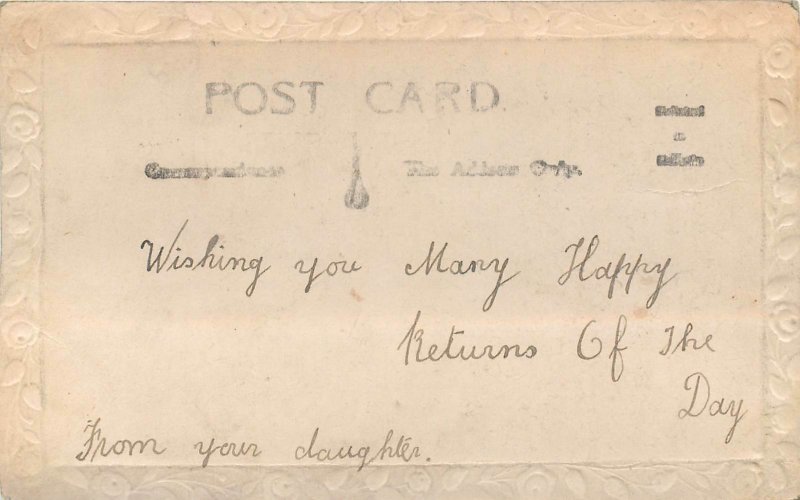 POST CARD
Correspondence The Address Only.
Wishing you Many Happy
Returns Of The
Day
From your daughter.